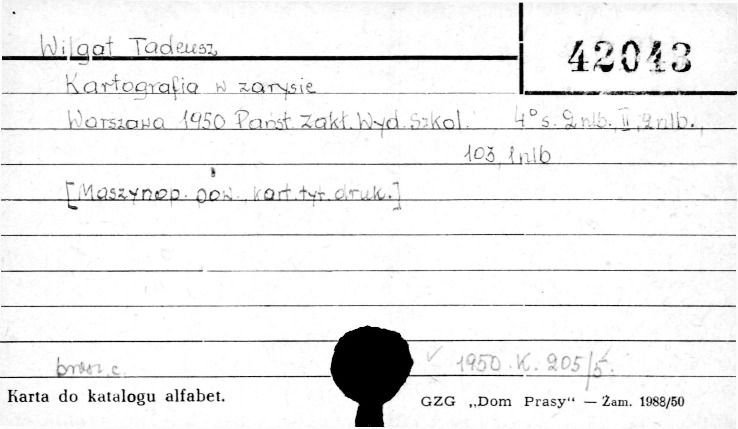 Wilgat Tadeusz
42043
Kartografia w zarysie
Warszawa 1950 Państ. Zakł. Wyd. Szkol. 4° s. 2 nlb., II, 2 nlb.,
103, 1 nlb
[Maszynop. pow. kart. tyt. druk.]
brosz. c. 1950. K. 205/5.
Karta do katalogu alfabet.
GZG „Dom Prasy“ — Zam. 1988/50